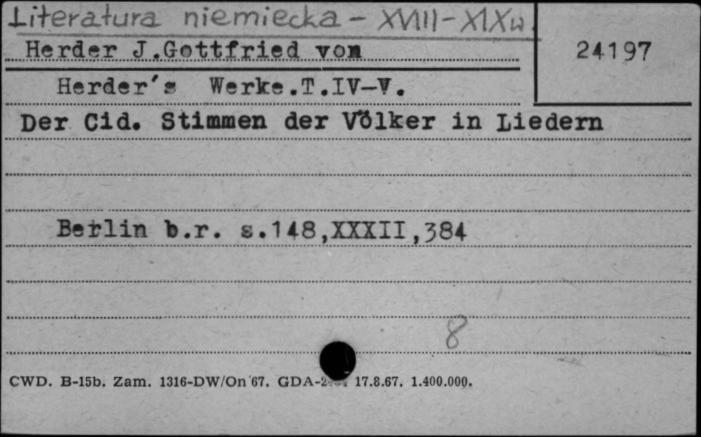 Literatura niemiecka - XVIII-XIXw.
Herder J.Gottfried von
24197
Herder's Werke.T.IV-V.
Der Cid. Stimmen der Völker in Liedern
Berlin b.r. s.148,XXXII,384
8
CWD. B-15b. Zam. 1316-DW/On 67. 17.8.67. 1.400.000.